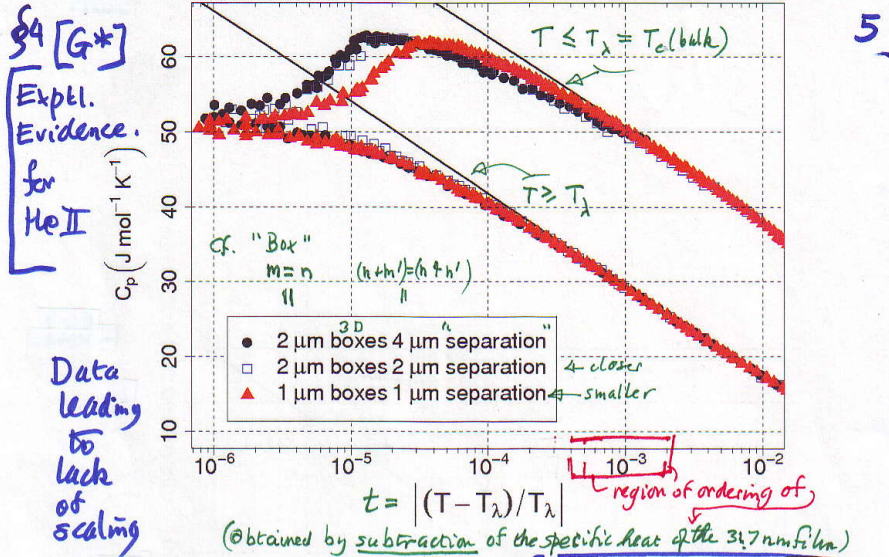 §4 [G*]
Exptl.
Evidence.
for
He II
5
T ≤ Tλ = Tc(bulk)
T ≥ Tλ
Cp (J mol⁻¹ K⁻¹)
60
50
40
30
20
10
cf. "Box"
m = n (n+m')=(n+n')
|| ||
3D "
2 μm boxes 4 μm separation"
2 μm boxes 2 μm separation ← closer
1 μm boxes 1 μm separation ← smaller
Data
leading
to
lack
of
scaling
10⁻⁶ 10⁻⁵ 10⁻⁴ 10⁻³ 10⁻²
t = |(T − Tλ)/Tλ|
region of ordering of
(obtained by subtraction of the specific heat of the 31.7 nm film)